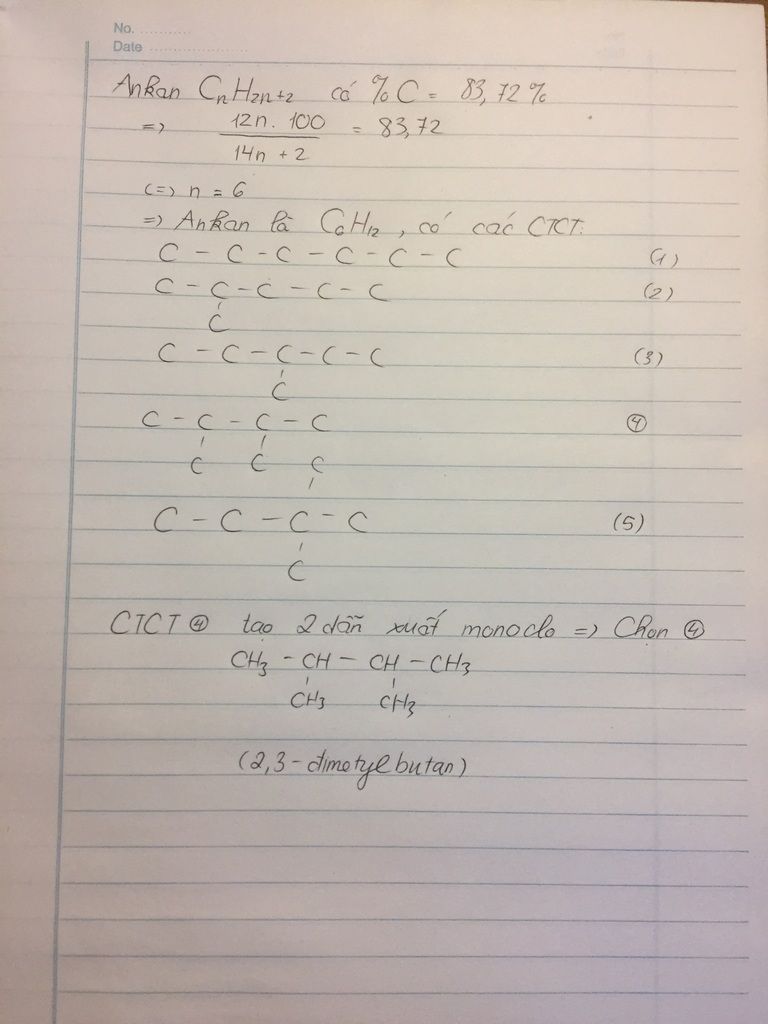 No. ...........
Date ......................
Ankan CnH2n+2 có %C = 83,72%
=> 12n. 100 / 14n + 2 = 83,72
<=> n = 6
=> Ankan là C6H12, có các CTCT:
C - C - C - C - C - C (1)
C - C - C - C - C (2)
C
C - C - C - C - C (3)
C
C - C - C - C (4)
C C C
C - C - C - C (5)
C
CTCT (4) tạo 2 dẫn xuất monoclo => Chọn (4)
CH3 - CH - CH - CH3
CH3 CH3
(2,3-đimetylbutan)